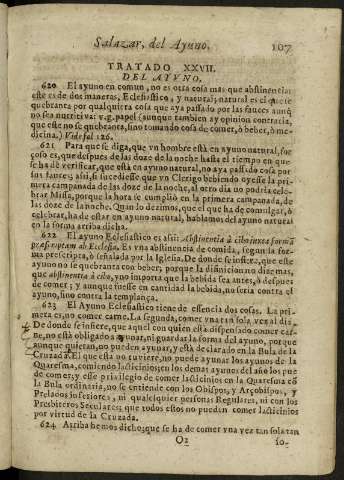 Salazar, del Ayuno. 107
TRATADO XXVII.
DEL AYVNO.
620 El ayuno en comun, no es otra cosa mas que abstinencia:
este es de dos maneras, Eclesiastico, y natural; natural es el que se
quebranta por qualquiera cosa que aya passado por las fauces aunq̃
no sea nutritiva: v.g. papel (aunque tambien ay opinion contraria,
que este no se quebranta, sino tomando cosa de comer, ò beber, ò me-
dicina.) Vide fol. 126.
621 Para que se diga, que vn hombre està en ayuno natural, for
cosa es, que despues de las doze de la noche hasta el tiempo en que
se ha de verificar, que està en ayuno natural, no aya passado cosa por
sus fauces; assi, si sucediesse que vn Clerigo bebiendo oyesse la pri-
mera campanada de las doze de la noche, al otro dia no podria cele-
brar Missa, porque la hora se cumpliò en la primera campanada, de
las doze de la noche. Quando dezimos, que el que ha de comulgar, ò
celebrar, ha de estar en ayuno natural, hablamos del ayuno natural
en la forma arriba dicha.
622 El ayuno Eclesiastico es assi: Abstinentia à cibo iuxta formã
præscriptam ab Ecclesia. Es vna abstinencia de comida, segun la for-
ma prescripta, ò señalada por la Iglesia. De donde se infiere, que este
ayuno no se quebranta con beber, porque la difinicion no dize mas,
que abstinentia à cibo, y no importa que la bebida sea antes, ò despues
de comer; y aunque fuesse en cantidad la bebida, no seria contra el
ayuno, sino contra la templança.
623 El Ayuno Eclesiastico tiene de essencia dos cosas. La pri-
mera es, no comer carne. La segunda, comer vna vez sola vez al dia.
De donde se infiere, que aquel con quien està dispensado comer car-
ne, no està obligado à ayunar, ni guardar la forma del ayuno, porque
aunque quieran, no pueden ayunar, y està declarado en la Bula de la
Cruzada. El que esta no tuviere, no puede ayunar los ayunos de la
Quaresma, comiendo lacticinios; en los demas ayunos del año los pue
de comer, y este privilegio de comer lacticinios en la Quaresma cõ
la Bula ordinaria, no se entiende con los Obispos, y Arçobispos, y
Prelados inferiores, ni qualesquier personas Regulares, ni con los
Presbiteros Seculares; que todos estos no pueden comer lacticinios
por virtud de la Cruzada.
624 Arriba hemos dicho, que se ha de comer vna vez tan sola tan
O2 so-